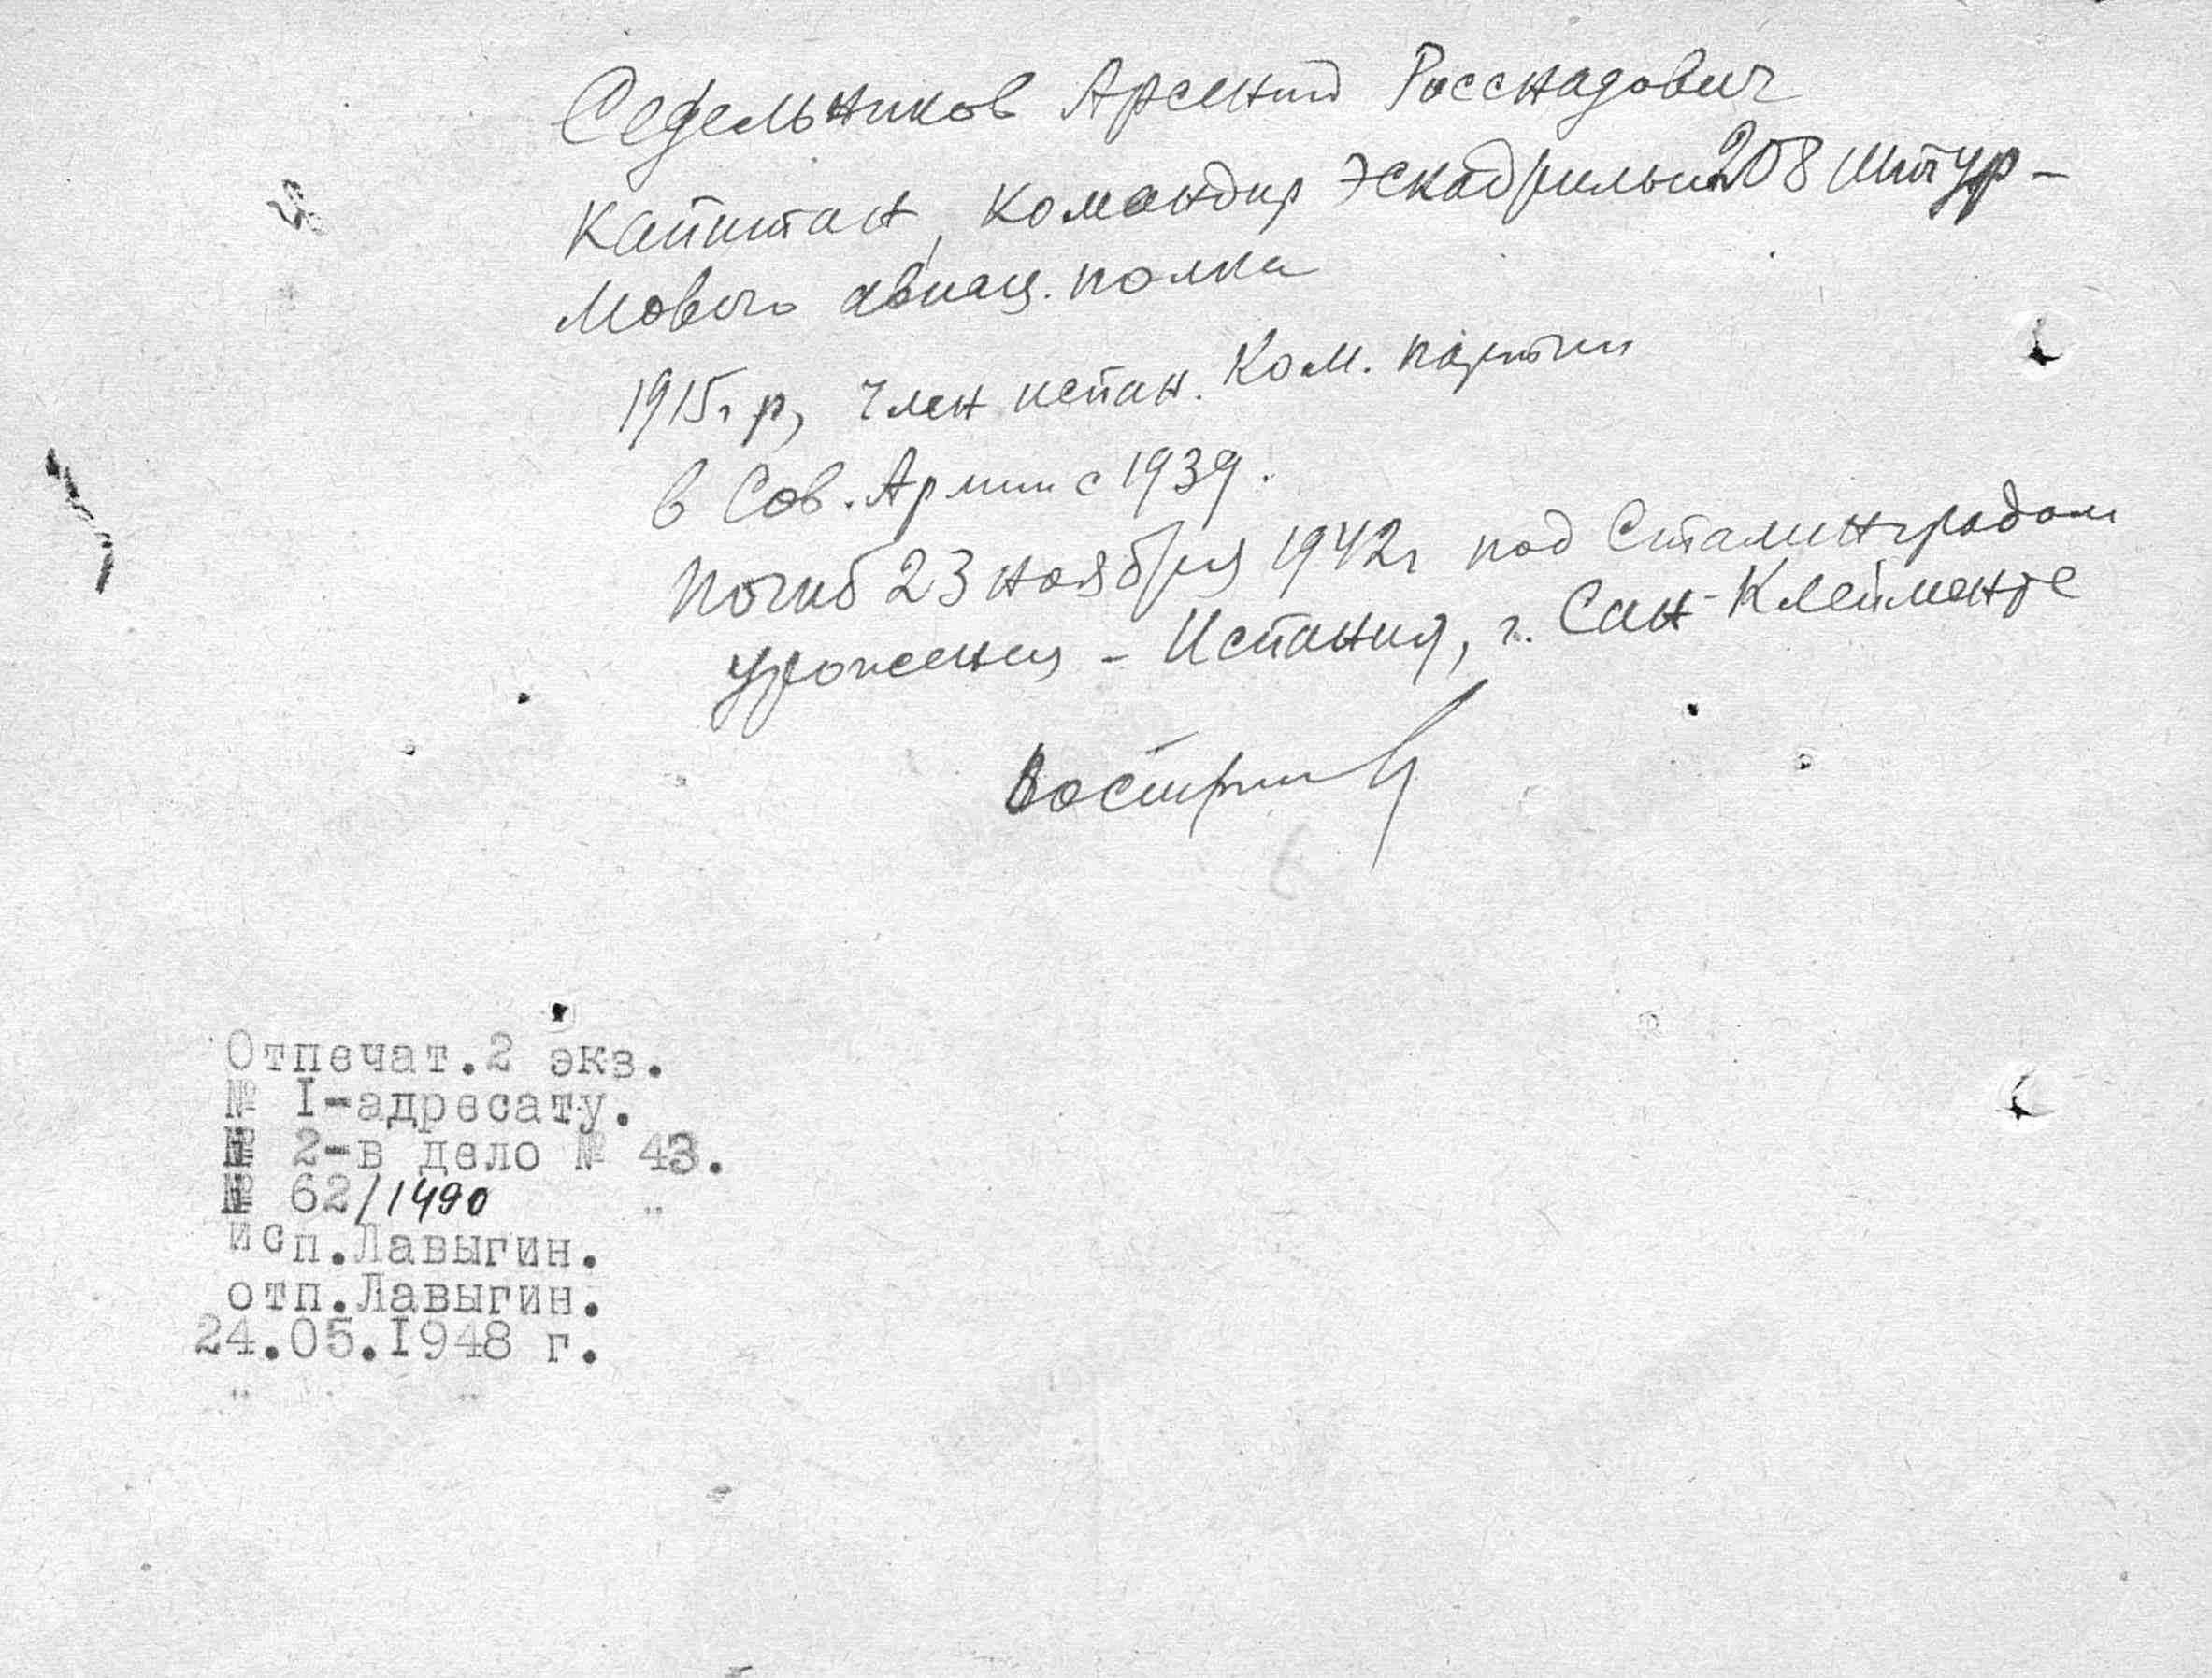 Седельников Арсений Росснадович
Капитан, командир эскадрильи 208 штур-
мового авиац. полка
1915г р, член испан. Ком. партии
в Сов. Армии с 1939.
Погиб 23 ноября 1942г под Сталинградом
урожениц - Испания, г. Сан-Клейменте
Отпечат.2 экз.
№ I-адресату.
№ 2-в дело № 43.
№ 62/1490
исп.Лавыгин.
отп.Лавыгин.
24.05.I948 г.